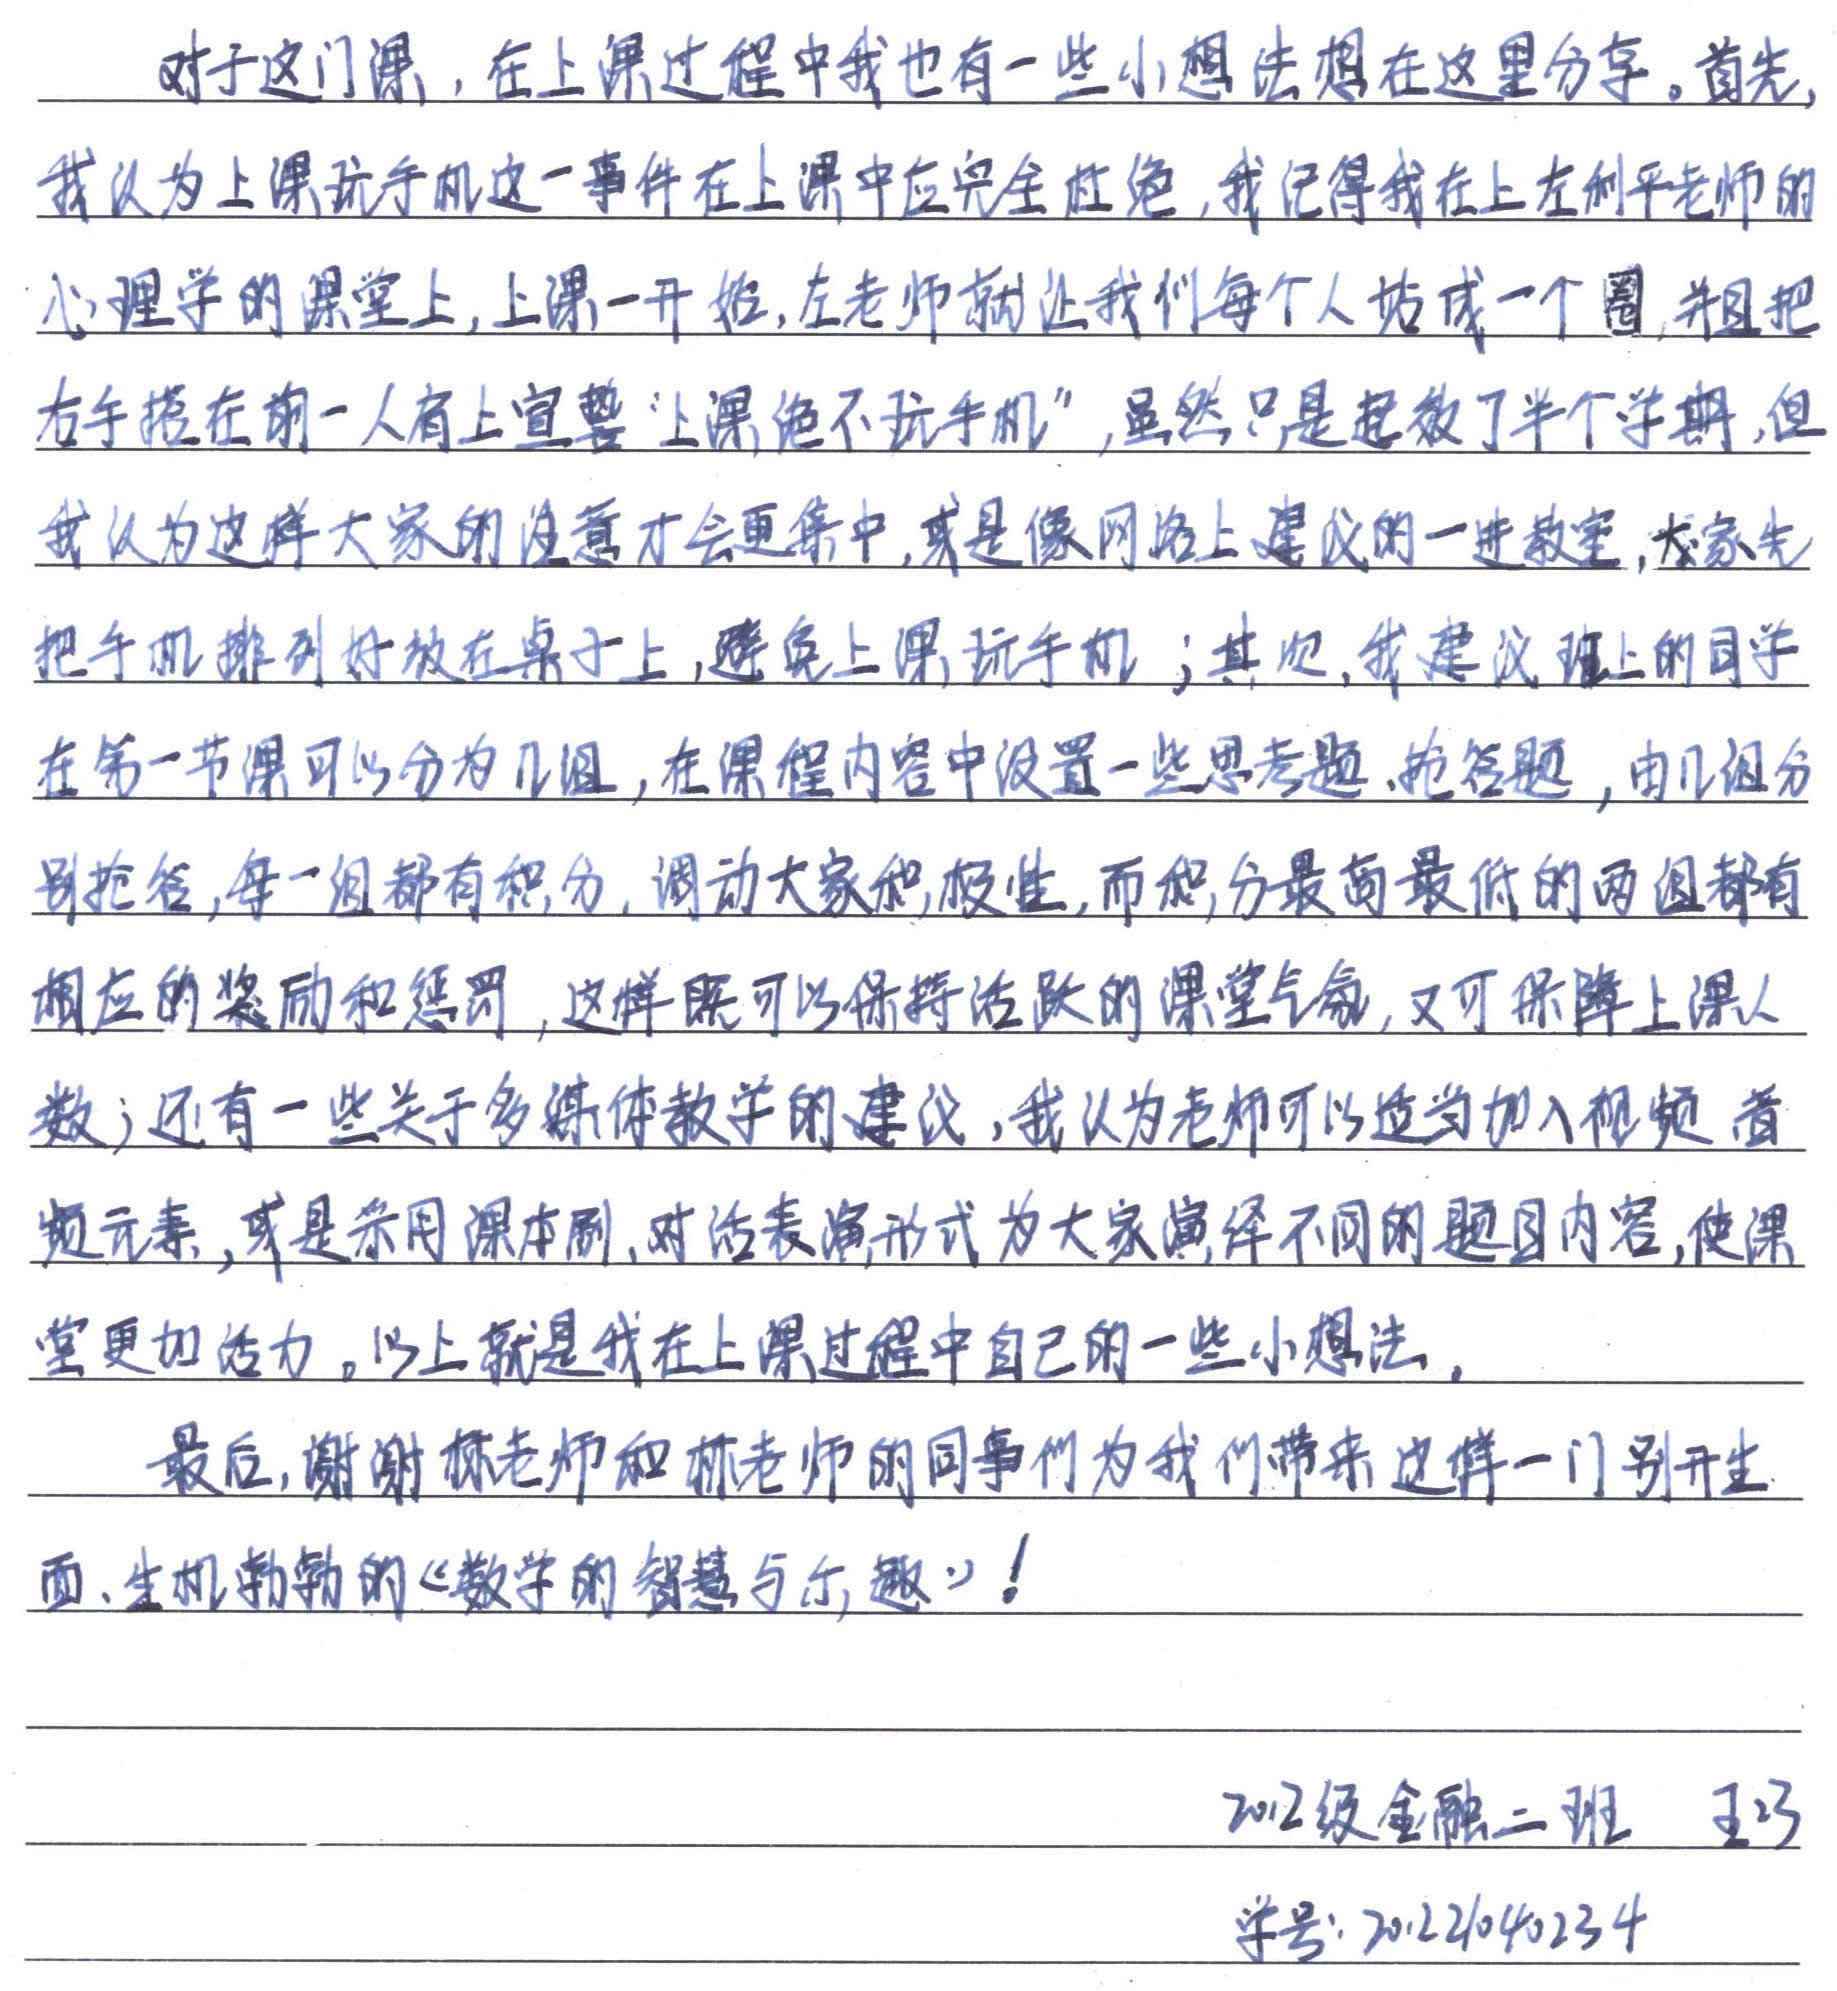 对于这门课，在上课过程中我也有一些小想法想在这里分享。首先，
我认为上课玩手机这一事件在上课中应完全杜绝，我记得我在上左利平老师的
心理学的课堂上，上课一开始，左老师就让我们每个人站成一个圈，并且把
右手搭在前一人肩上宣誓“上课绝不玩手机”，虽然只是起效了半个学期，但
我认为这样大家的注意才会更集中，或是像网络上建议的一进教室，大家先
把手机排列好放在桌子上，避免上课玩手机；其次，我建议班上的同学
在第一节课可以分为几组，在课程内容中设置一些思考题、抢答题，由几组分
别抢答，每一组都有积分，调动大家积极性，而积分最高最低的两组都有
相应的奖励和惩罚，这样既可以保持活跃的课堂气氛，又可保障上课人
数；还有一些关于多媒体教学的建议，我认为老师可以适当加入视频、音
频元素，或是采用课本剧、对话表演形式为大家演绎不同的题目内容，使课
堂更加活力。以上就是我在上课过程中自己的一些小想法。
最后，谢谢林老师和林老师的同事们为我们带来这样一门别开生
面、生机勃勃的《数学的智慧与乐趣》！
2012级金融二班 王巧
学号：201221040234